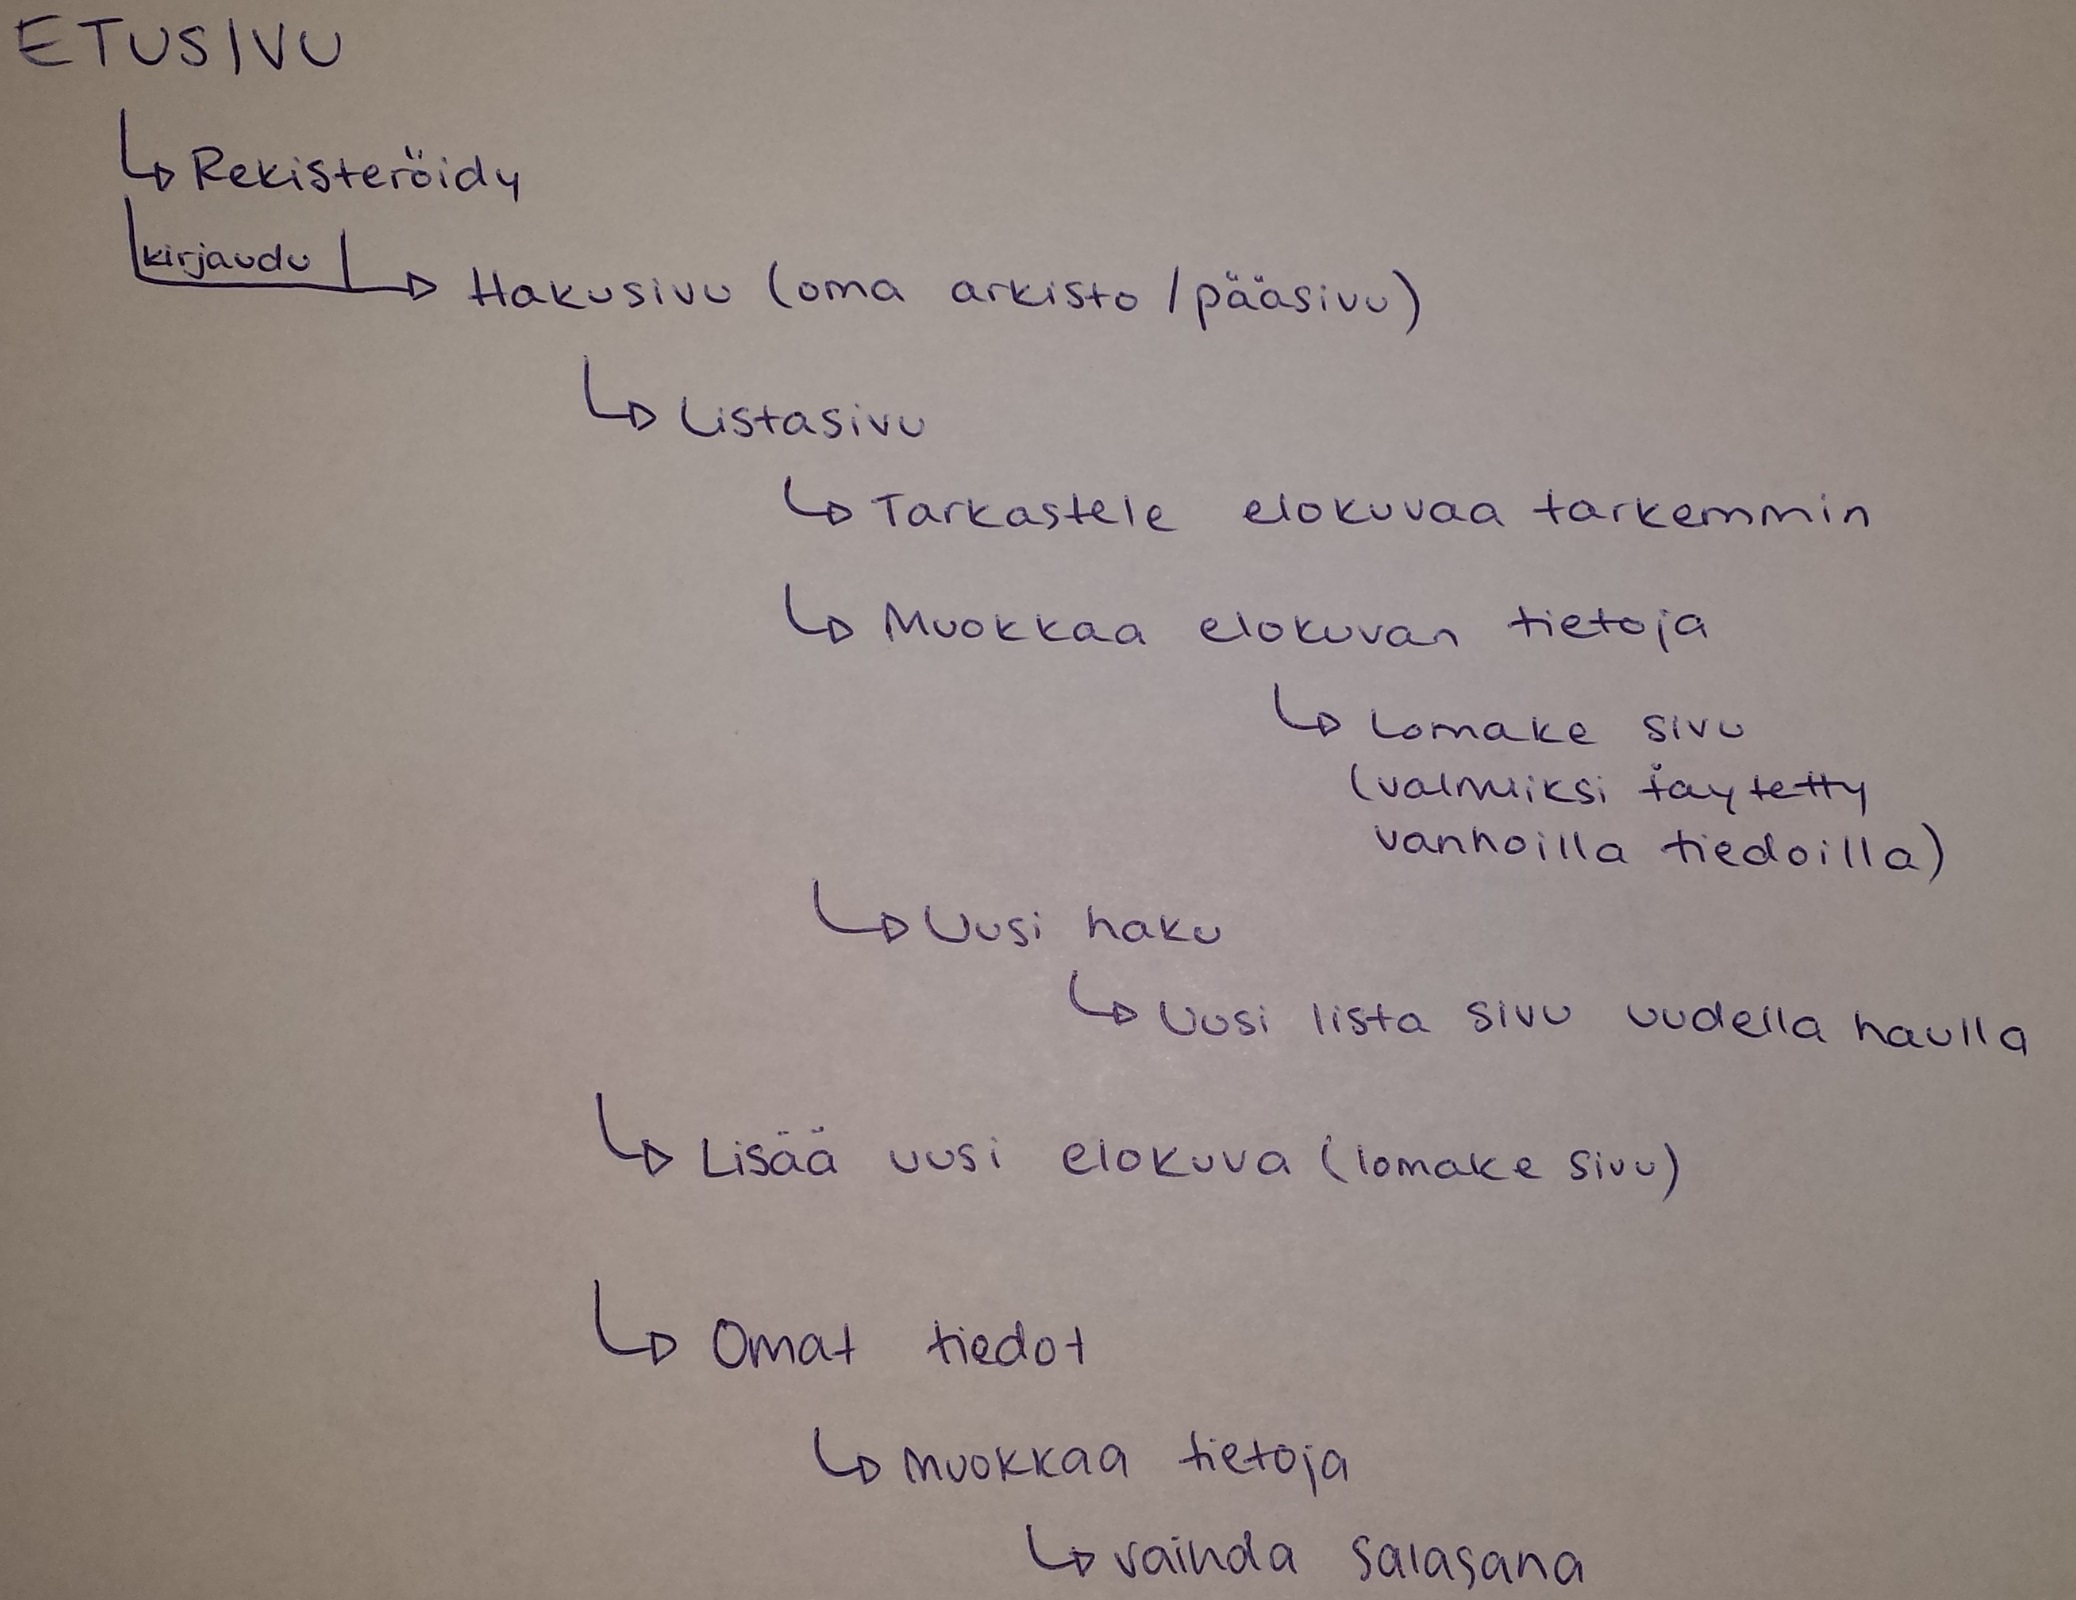 ETUSIVU
Rekisteröidy
kirjaudu
Hakusivu (oma arkisto / pääsivu)
Listasivu
Tarkastele elokuvaa tarkemmin
Muokkaa elokuvan tietoja
Lomake sivu
(valmiiksi täytetty
vanhoilla tiedoilla)
Uusi haku
Uusi lista sivu uudella haulla
Lisää uusi elokuva (lomake sivu)
Omat tiedot
muokkaa tietoja
vaihda salasana